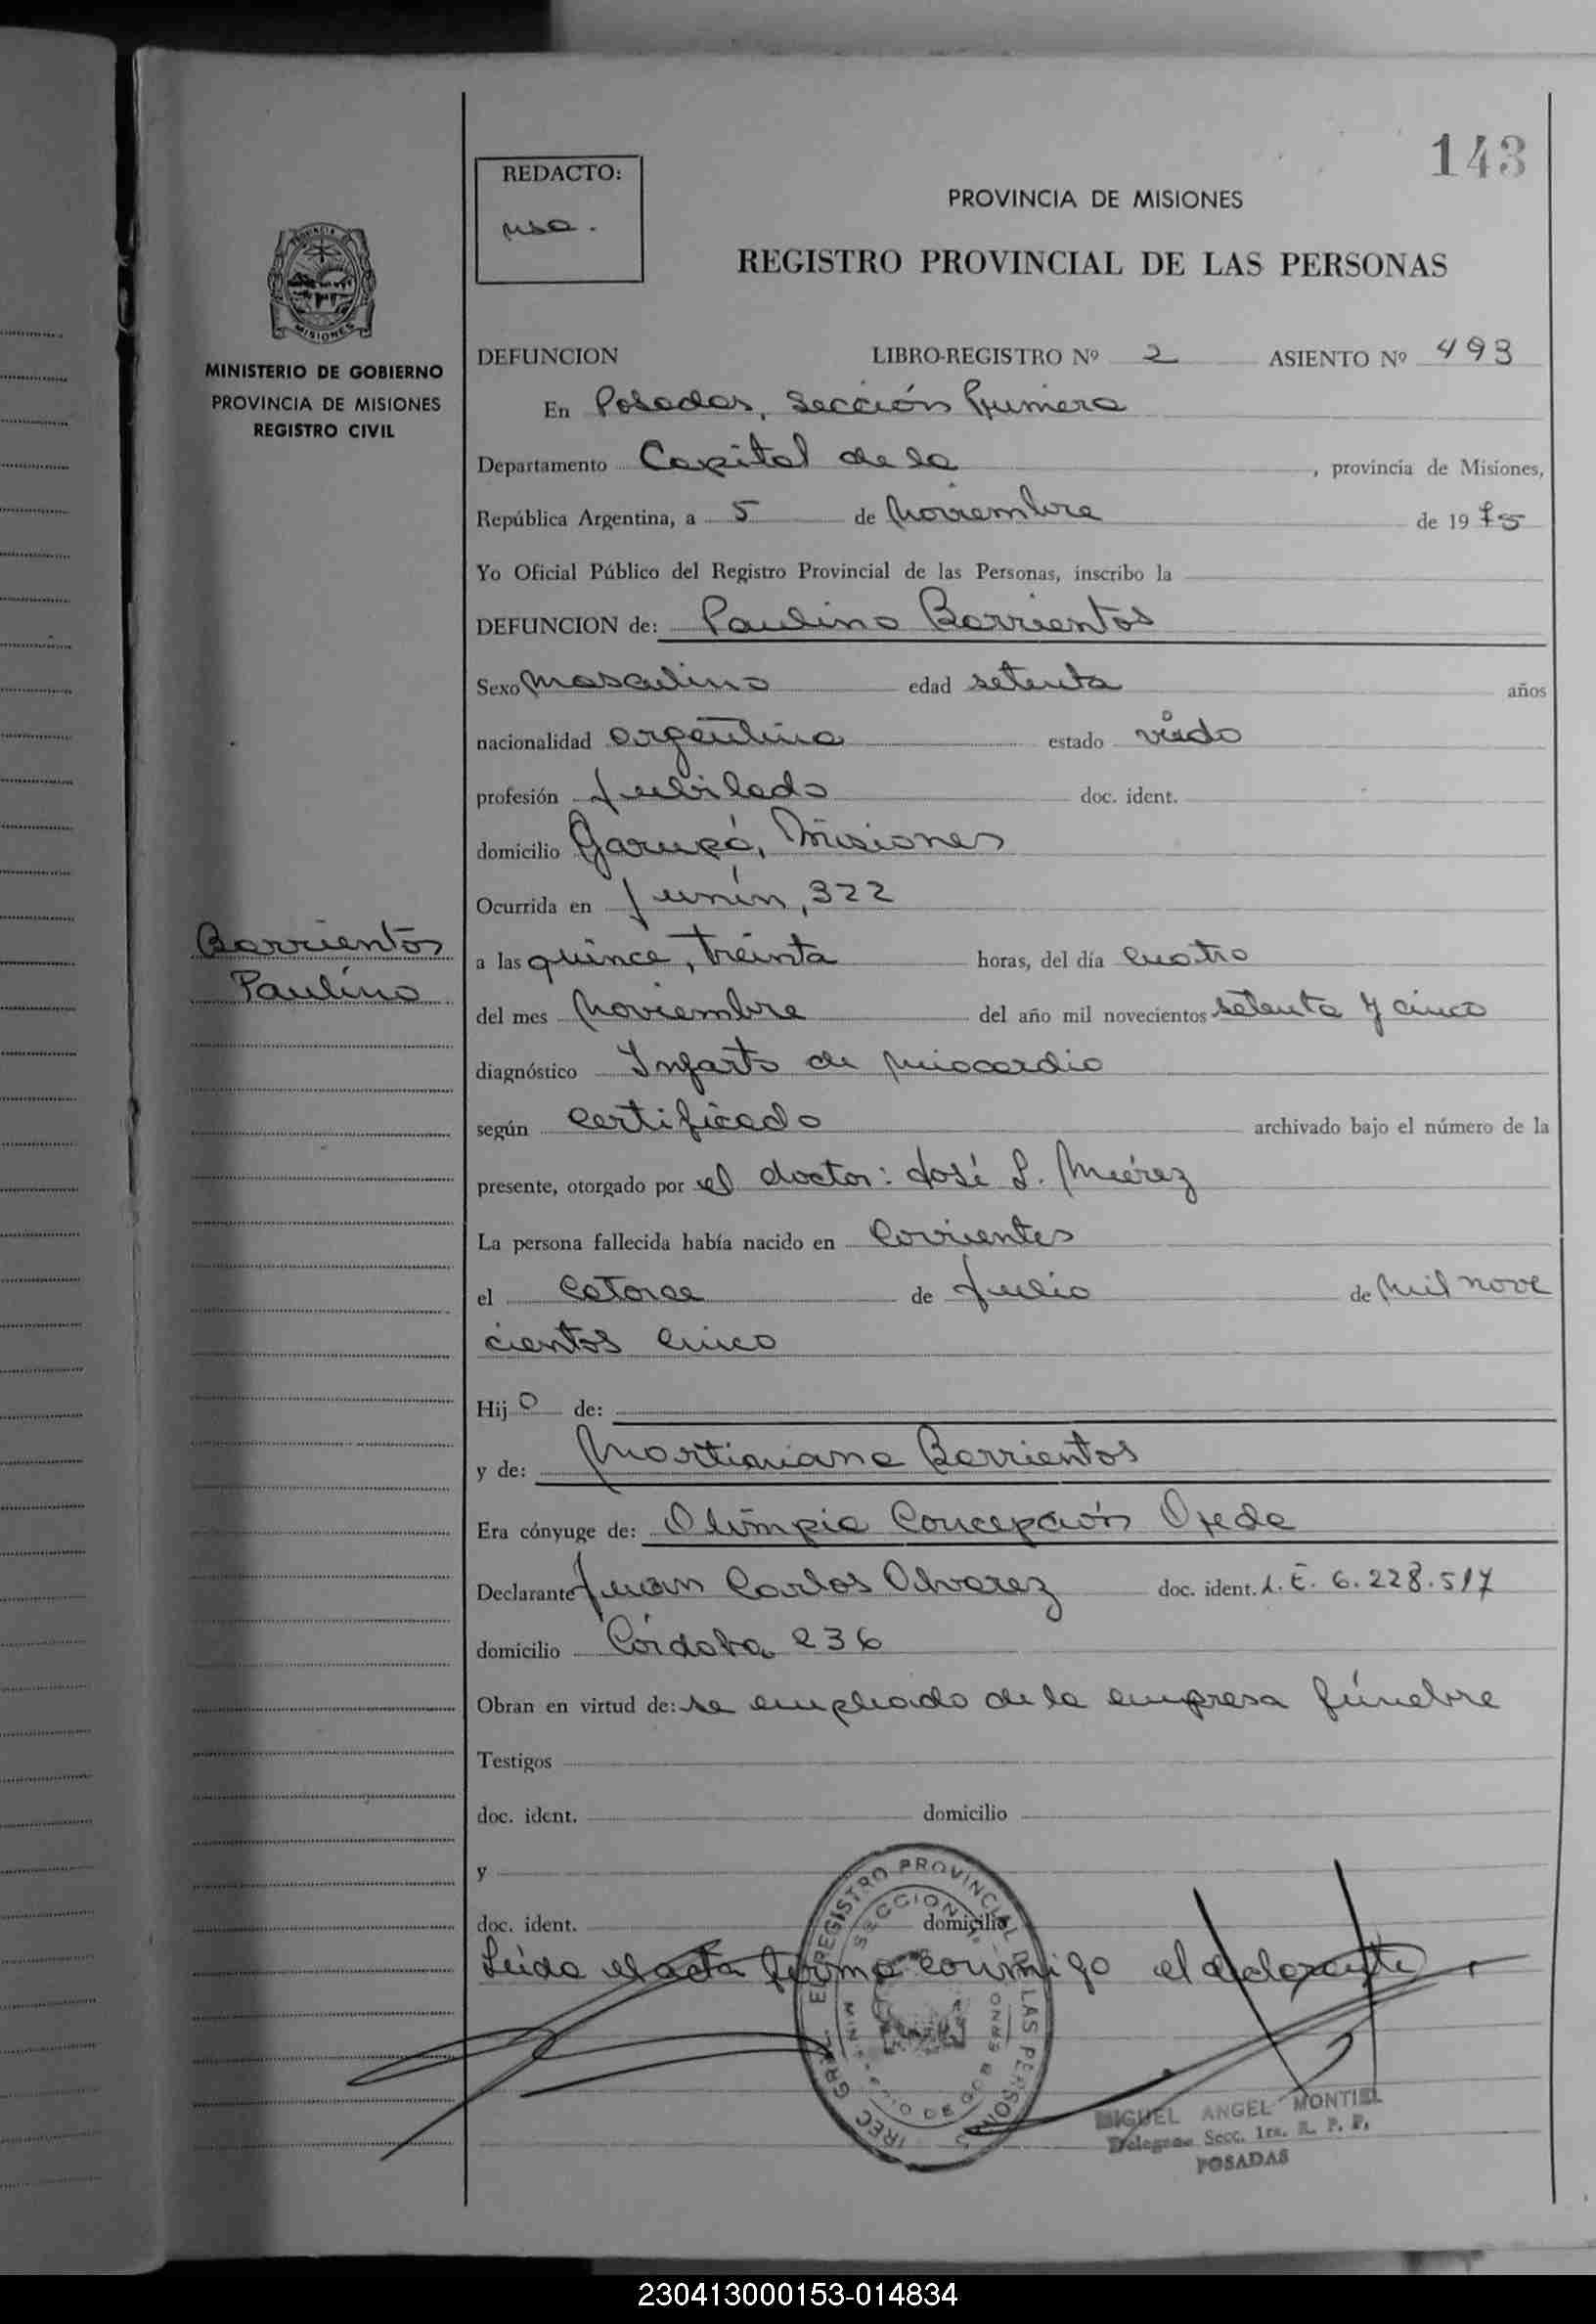 143
REDACTO:
PROVINCIA DE MISIONES
REGISTRO PROVINCIAL DE LAS PERSONAS
MINISTERIO DE GOBIERNO
PROVINCIA DE MISIONES
REGISTRO CIVIL
DEFUNCION LIBRO-REGISTRO Nº 2 ASIENTO Nº 493
En Posadas, Sección Primera
Departamento Capital de la, provincia de Misiones,
República Argentina, a 5 de Noviembre de 1975
Yo Oficial Público del Registro Provincial de las Personas, inscribo la
DEFUNCION de: Paulino Barrientos
Sexo Masculino edad setenta años
nacionalidad argentina estado viudo
profesión Jubilado doc. ident.
domicilio Garupá, Misiones
Ocurrida en Junín, 322
Barrientos
Paulino
a las quince, treinta horas, del día cuatro
del mes Noviembre del año mil novecientos setenta y cinco
diagnóstico Infarto de miocardio
según certificado archivado bajo el número de la
presente, otorgado por el doctor: José L. Miérez
La persona fallecida había nacido en Corrientes
el catorce de Julio de mil nove
cientos cinco
Hijo de:
y de: Martiniana Barrientos
Era cónyuge de: Olimpia Concepción Ojeda
Declarante Juan Carlos Alvarez doc. ident. L. E. 6.228.517
domicilio Córdoba 236
Obran en virtud de: se empleado de la empresa fúnebre
Testigos
doc. ident. domicilio
y
doc. ident. domicilio
Leida el acta firma conmigo el declarante,
REGISTRO PROVINCIAL DE LAS PERSONAS
SECCION
MIGUEL ANGEL MONTIEL
Secc. 1ra. R. P. P.
POSADAS
230413000153-014834